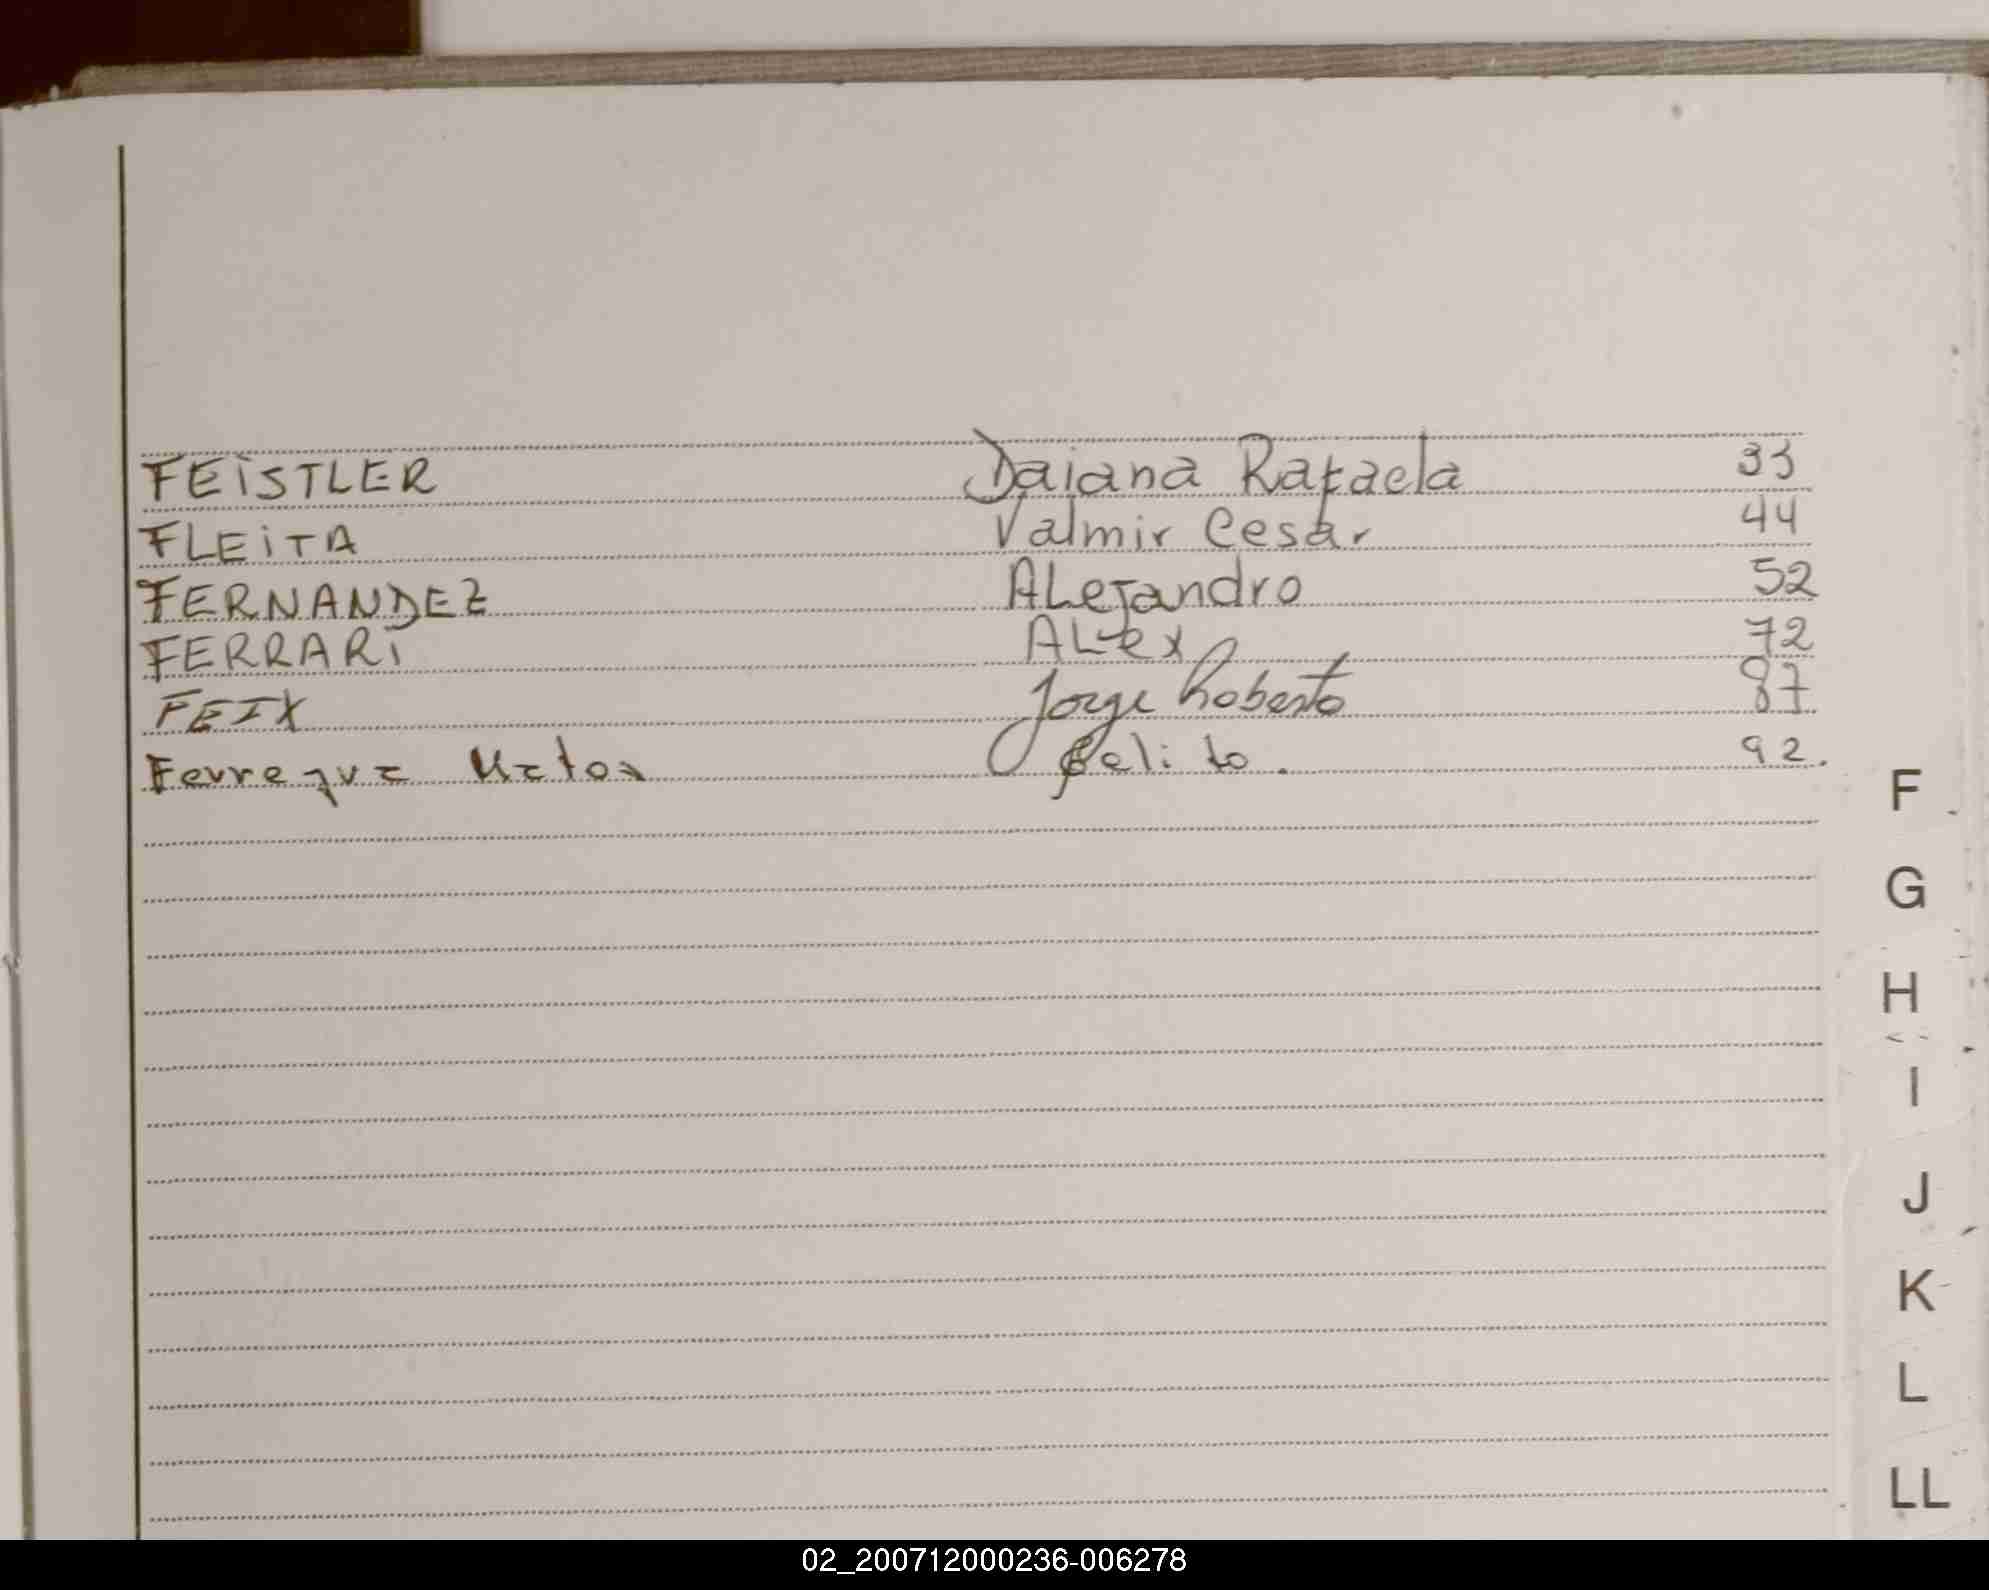 FEiSTLER Daiana Rafaela 33
FLEiTA Valmir Cesar 44
FERNANDEZ ALejandro 52
FERRARi ALex 72
FEIX Jorge Roberto 87
Matos 92.
F
G
H
I
J
K
L
LL
02_200712000236-006278